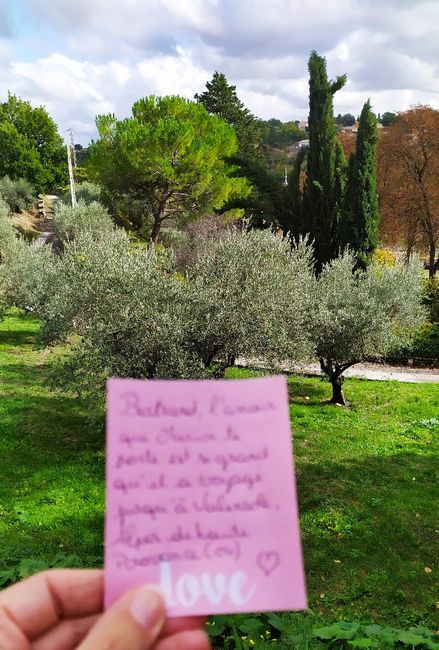 Bertrand, l'amour
que Marion te
porte est si grand
qu'il a voyagé
jusqu'à Valensole,
Alpes de haute
Provence (04)
love